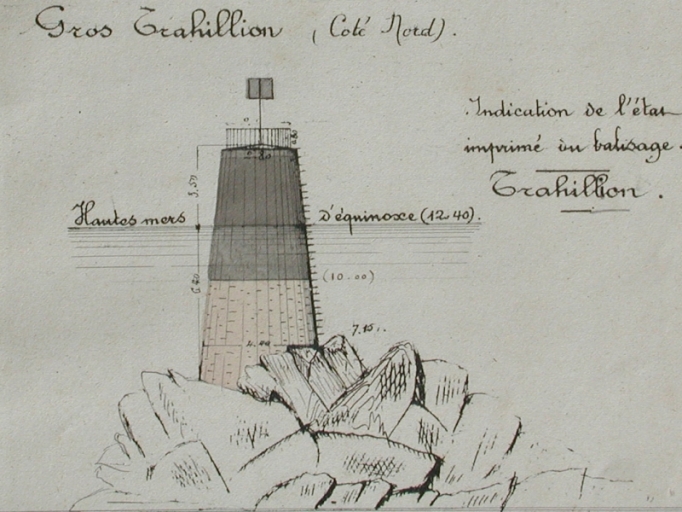 Gros Trahillion (Coté Nord).
Indication de l'état
imprimé du balisage.
Trahillion.
Hautes mers D'équinoxe (12.40).
(10.00)
7,15..